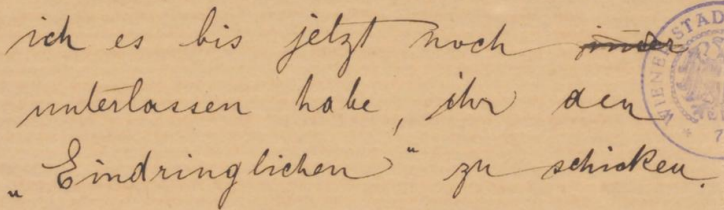 ich es bis jetzt noch immer
unterlassen habe, ihr den
„Eindringlichen“ zu schicken.
WIENER STAD